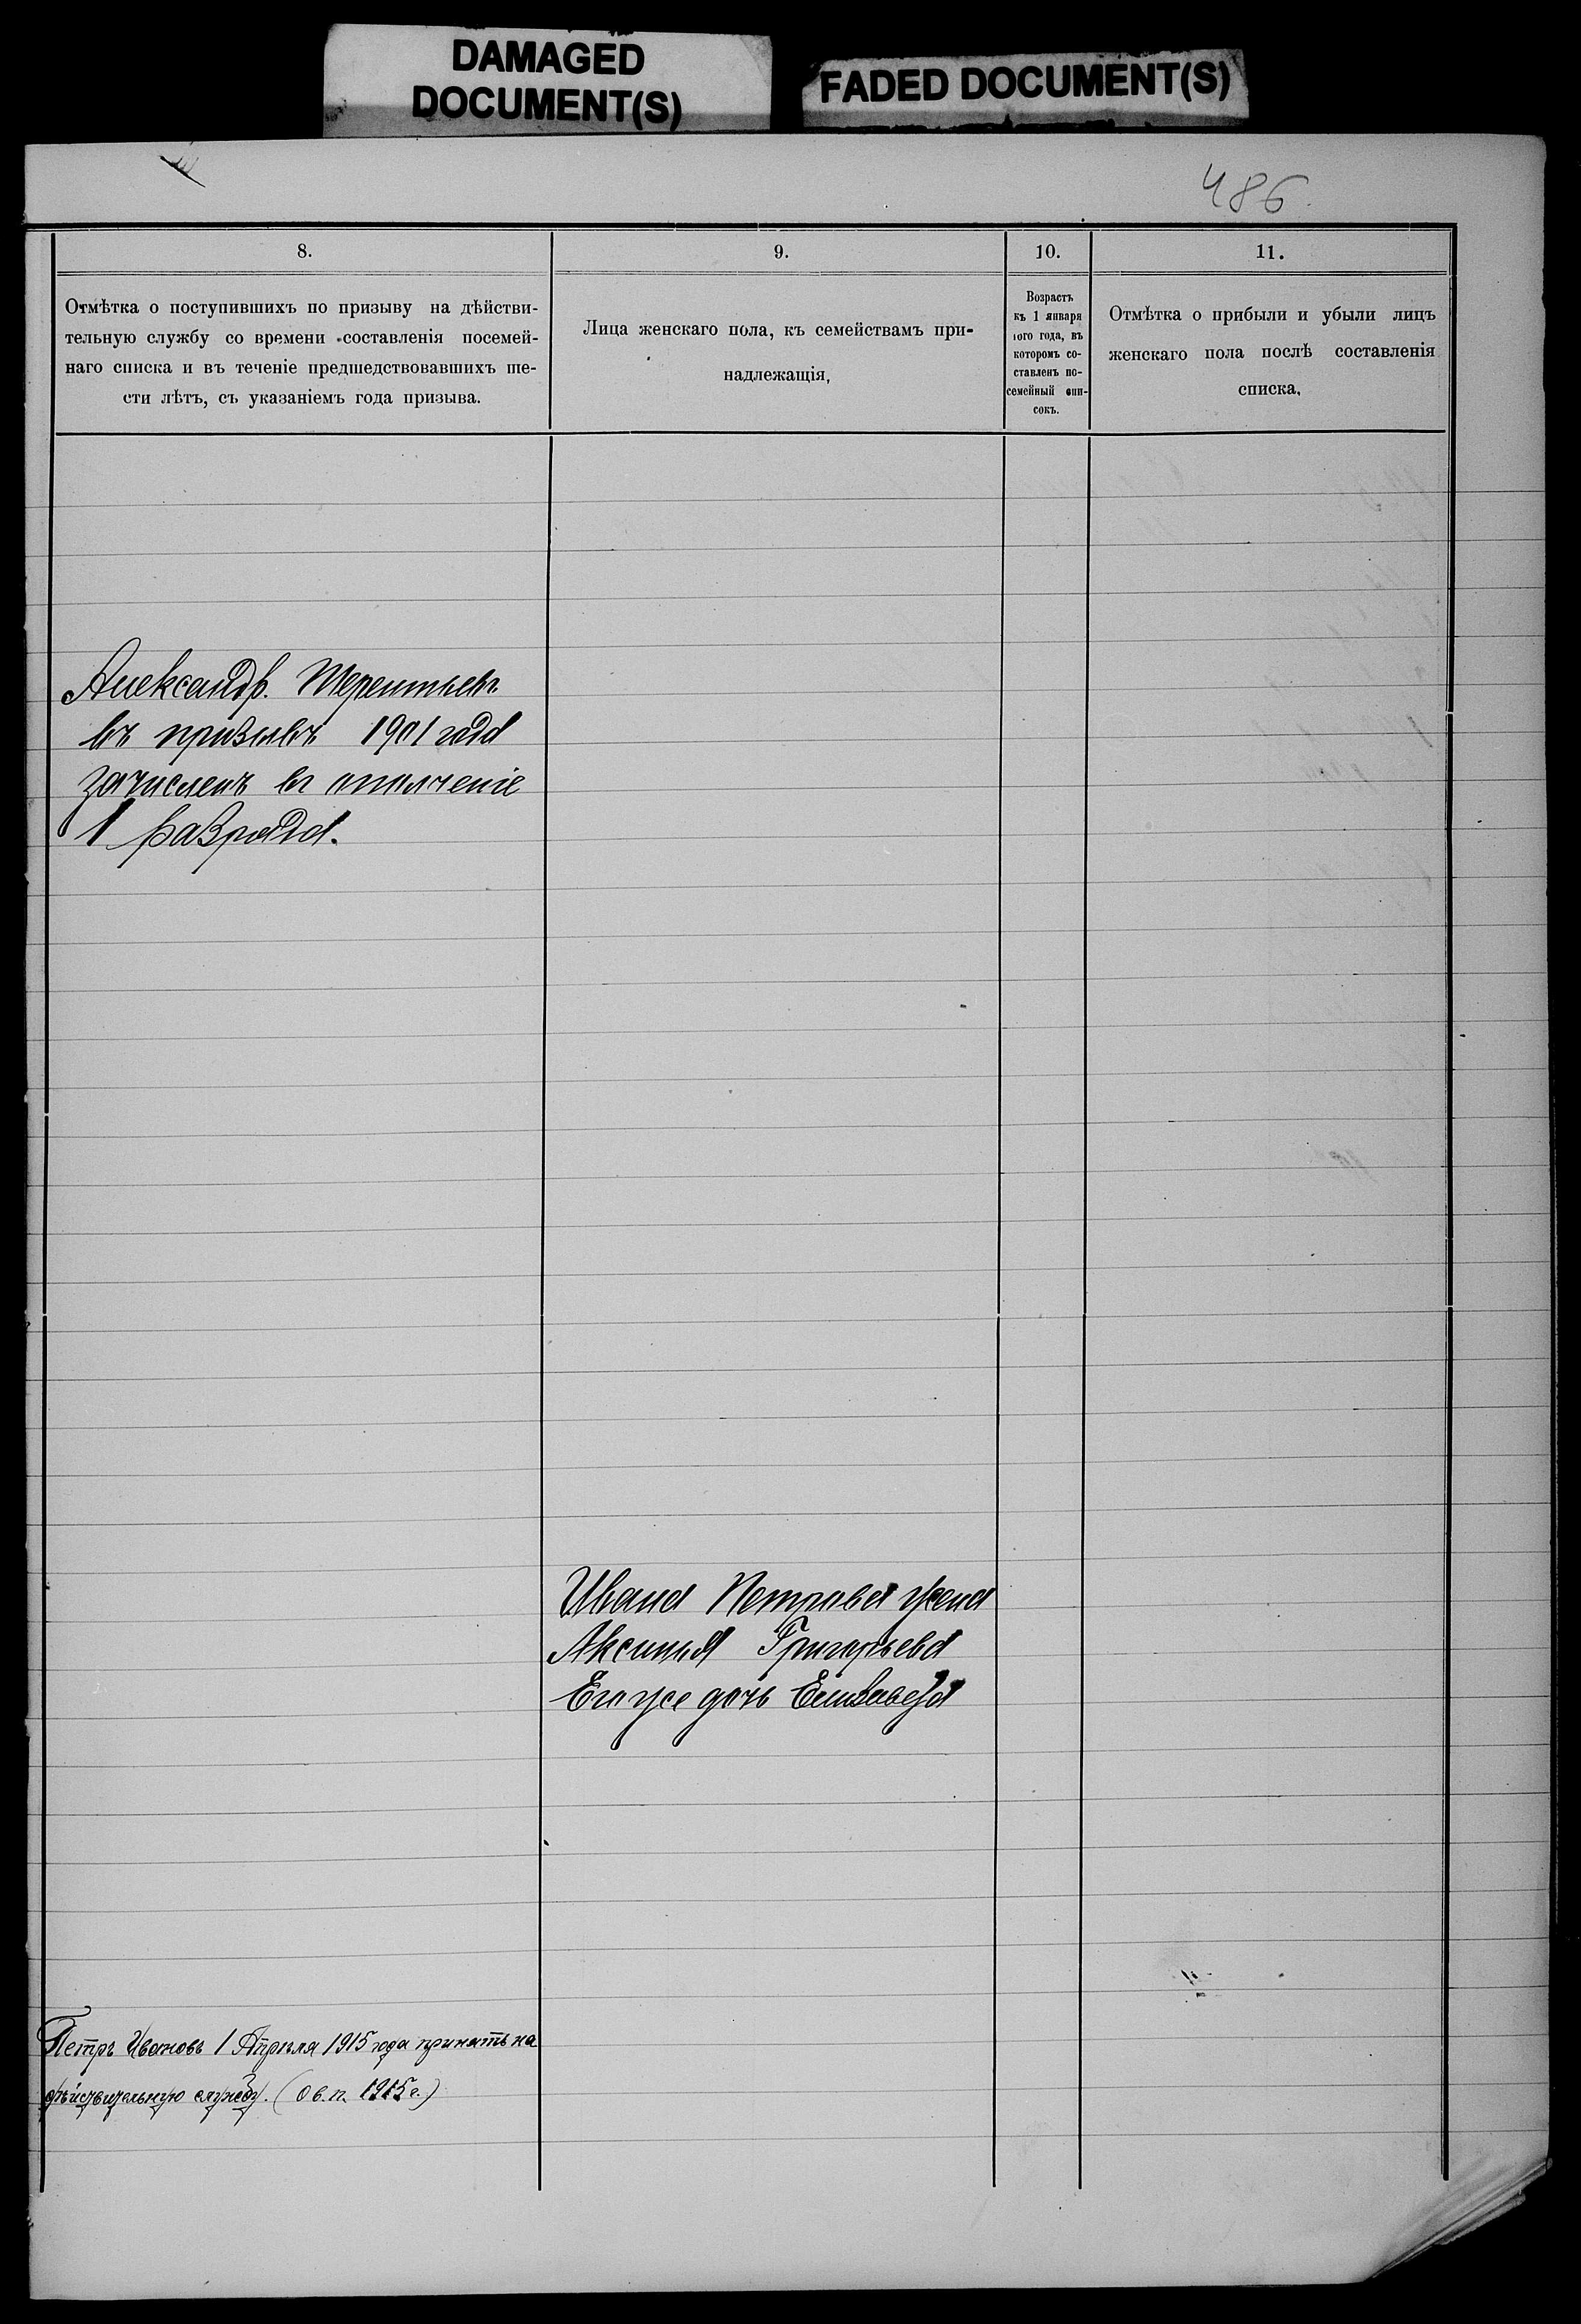 DAMAGED
DOCUMENT(S)
FADED DOCUMENT(S)
486.
8.
Отмѣтка о поступившихъ по призыву на дѣйстви-
тельную службу со времени составленія посемей-
наго списка и въ теченіе предшедствовавшихъ ше-
сти лѣтъ, съ указаніемъ года призыва.
9.
Лица женскаго пола, къ семействамъ при-
надлежащія,
10.
Возрастъ
къ 1 января
того года, въ
которомъ со-
ставленъ по-
семейный спи-
сокъ.
11.
Отмѣтка о прибыли и убыли лицъ
женскаго пола послѣ составленія
списка.
Александръ Терентьевъ
въ призывъ 1901 года
зачисленъ въ ополченіе
1 разряда.
Ивана Петрова жена
Аксинья Григорьева
Его же дочь Елизавета
Петръ Ивановъ 1 Апрѣля 1915 года принятъ на
дѣйствительную службу. (О в. п. 1915 г.)